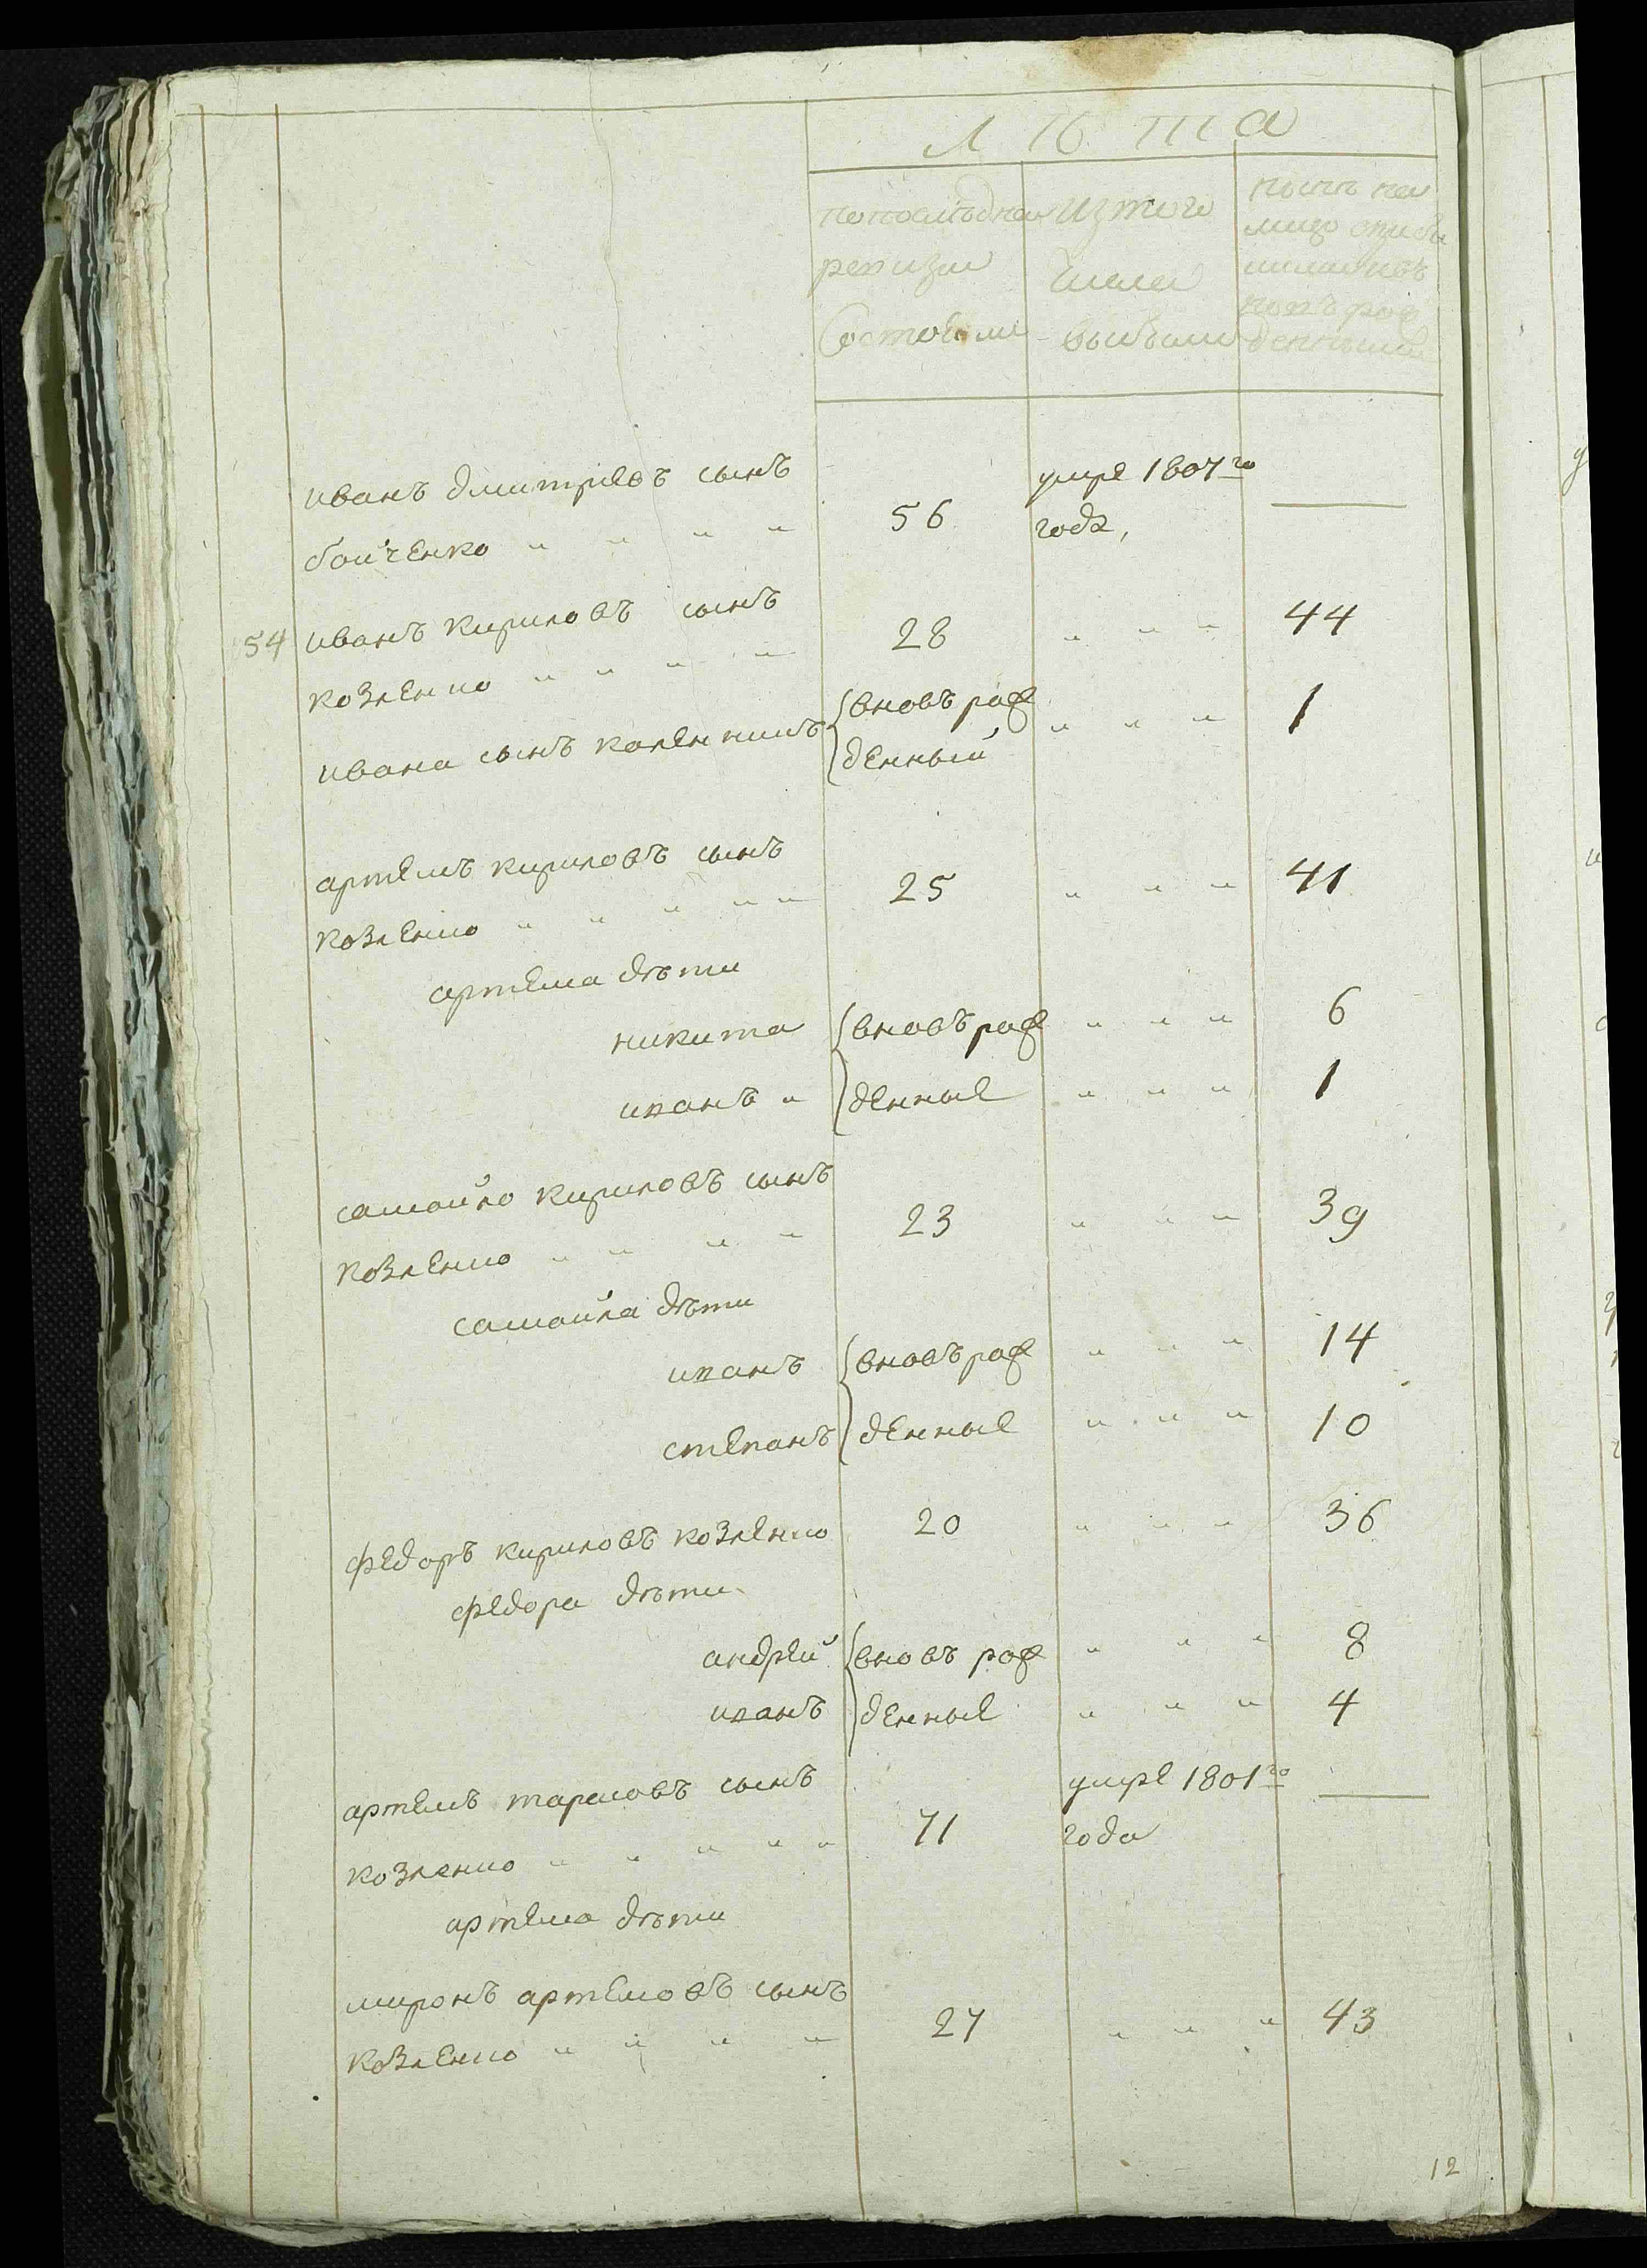 Лѣта
по последней ревизии Состояли
Изтого числа выбыли
ныне на лицо стиби шимися въ новь рож денными
иванъ дмитриевъ сынъ
бойченко " " " " 56 умре 1807го года, —
54 иванъ кириловъ сынъ
козленко " " " " 28 " " " 44
ивана сынъ каленникъ вновъ рож денный " " " 1
артемъ кириловъ сынъ
козленко " " " " " 25 " " " 41
артема дѣти
никита вновъ рож " " " 6
иванъ " денные " " " 1
самойло кириловъ сынъ
козленко " " " " 23 " " " 39
самойла дѣти
иванъ вновъ рож " " " 14
степанъ денные " " " 10
федоръ кириловъ козленко 20 " " " 36
федора дѣти
андрей вновъ рож " " " 8
иванъ денные " " " 4
артемъ тарасовъ сынъ
козленко " " " " " 71 умре 1801го года —
артема дѣти
миронъ артемовъ сынъ
козленко " " " " 27 " " " 43
12